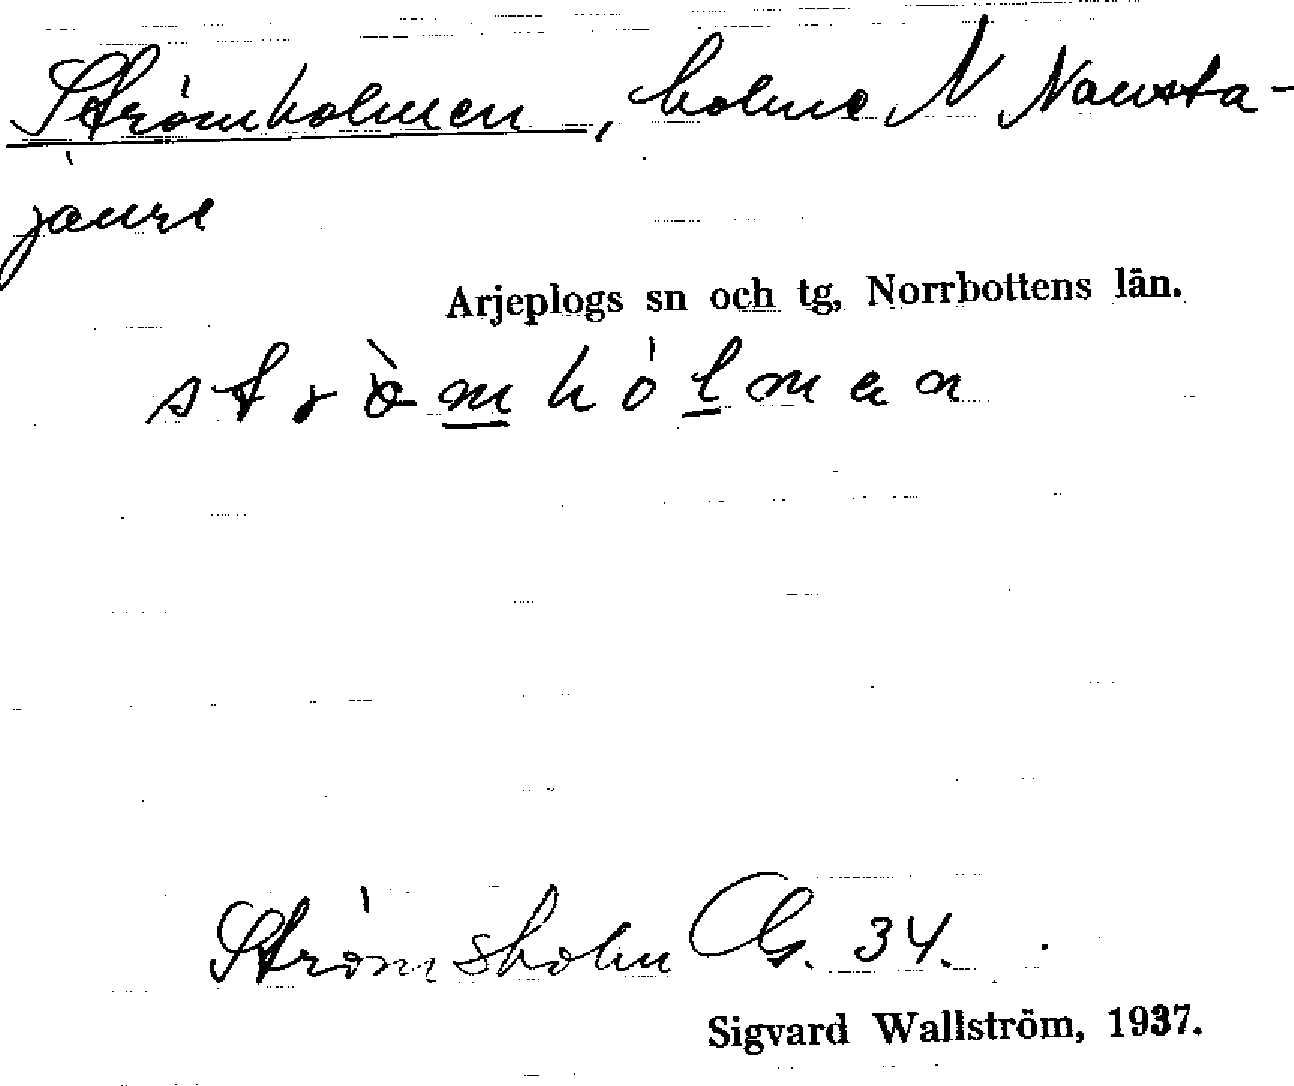 Strömholmen, holme N Nausta-
jaure
Arjeplogs sn och tg, Norrbottens län.
strö̀mhólmen
Strömsholm CG. 34.
Sigvard Wallström, 1937.